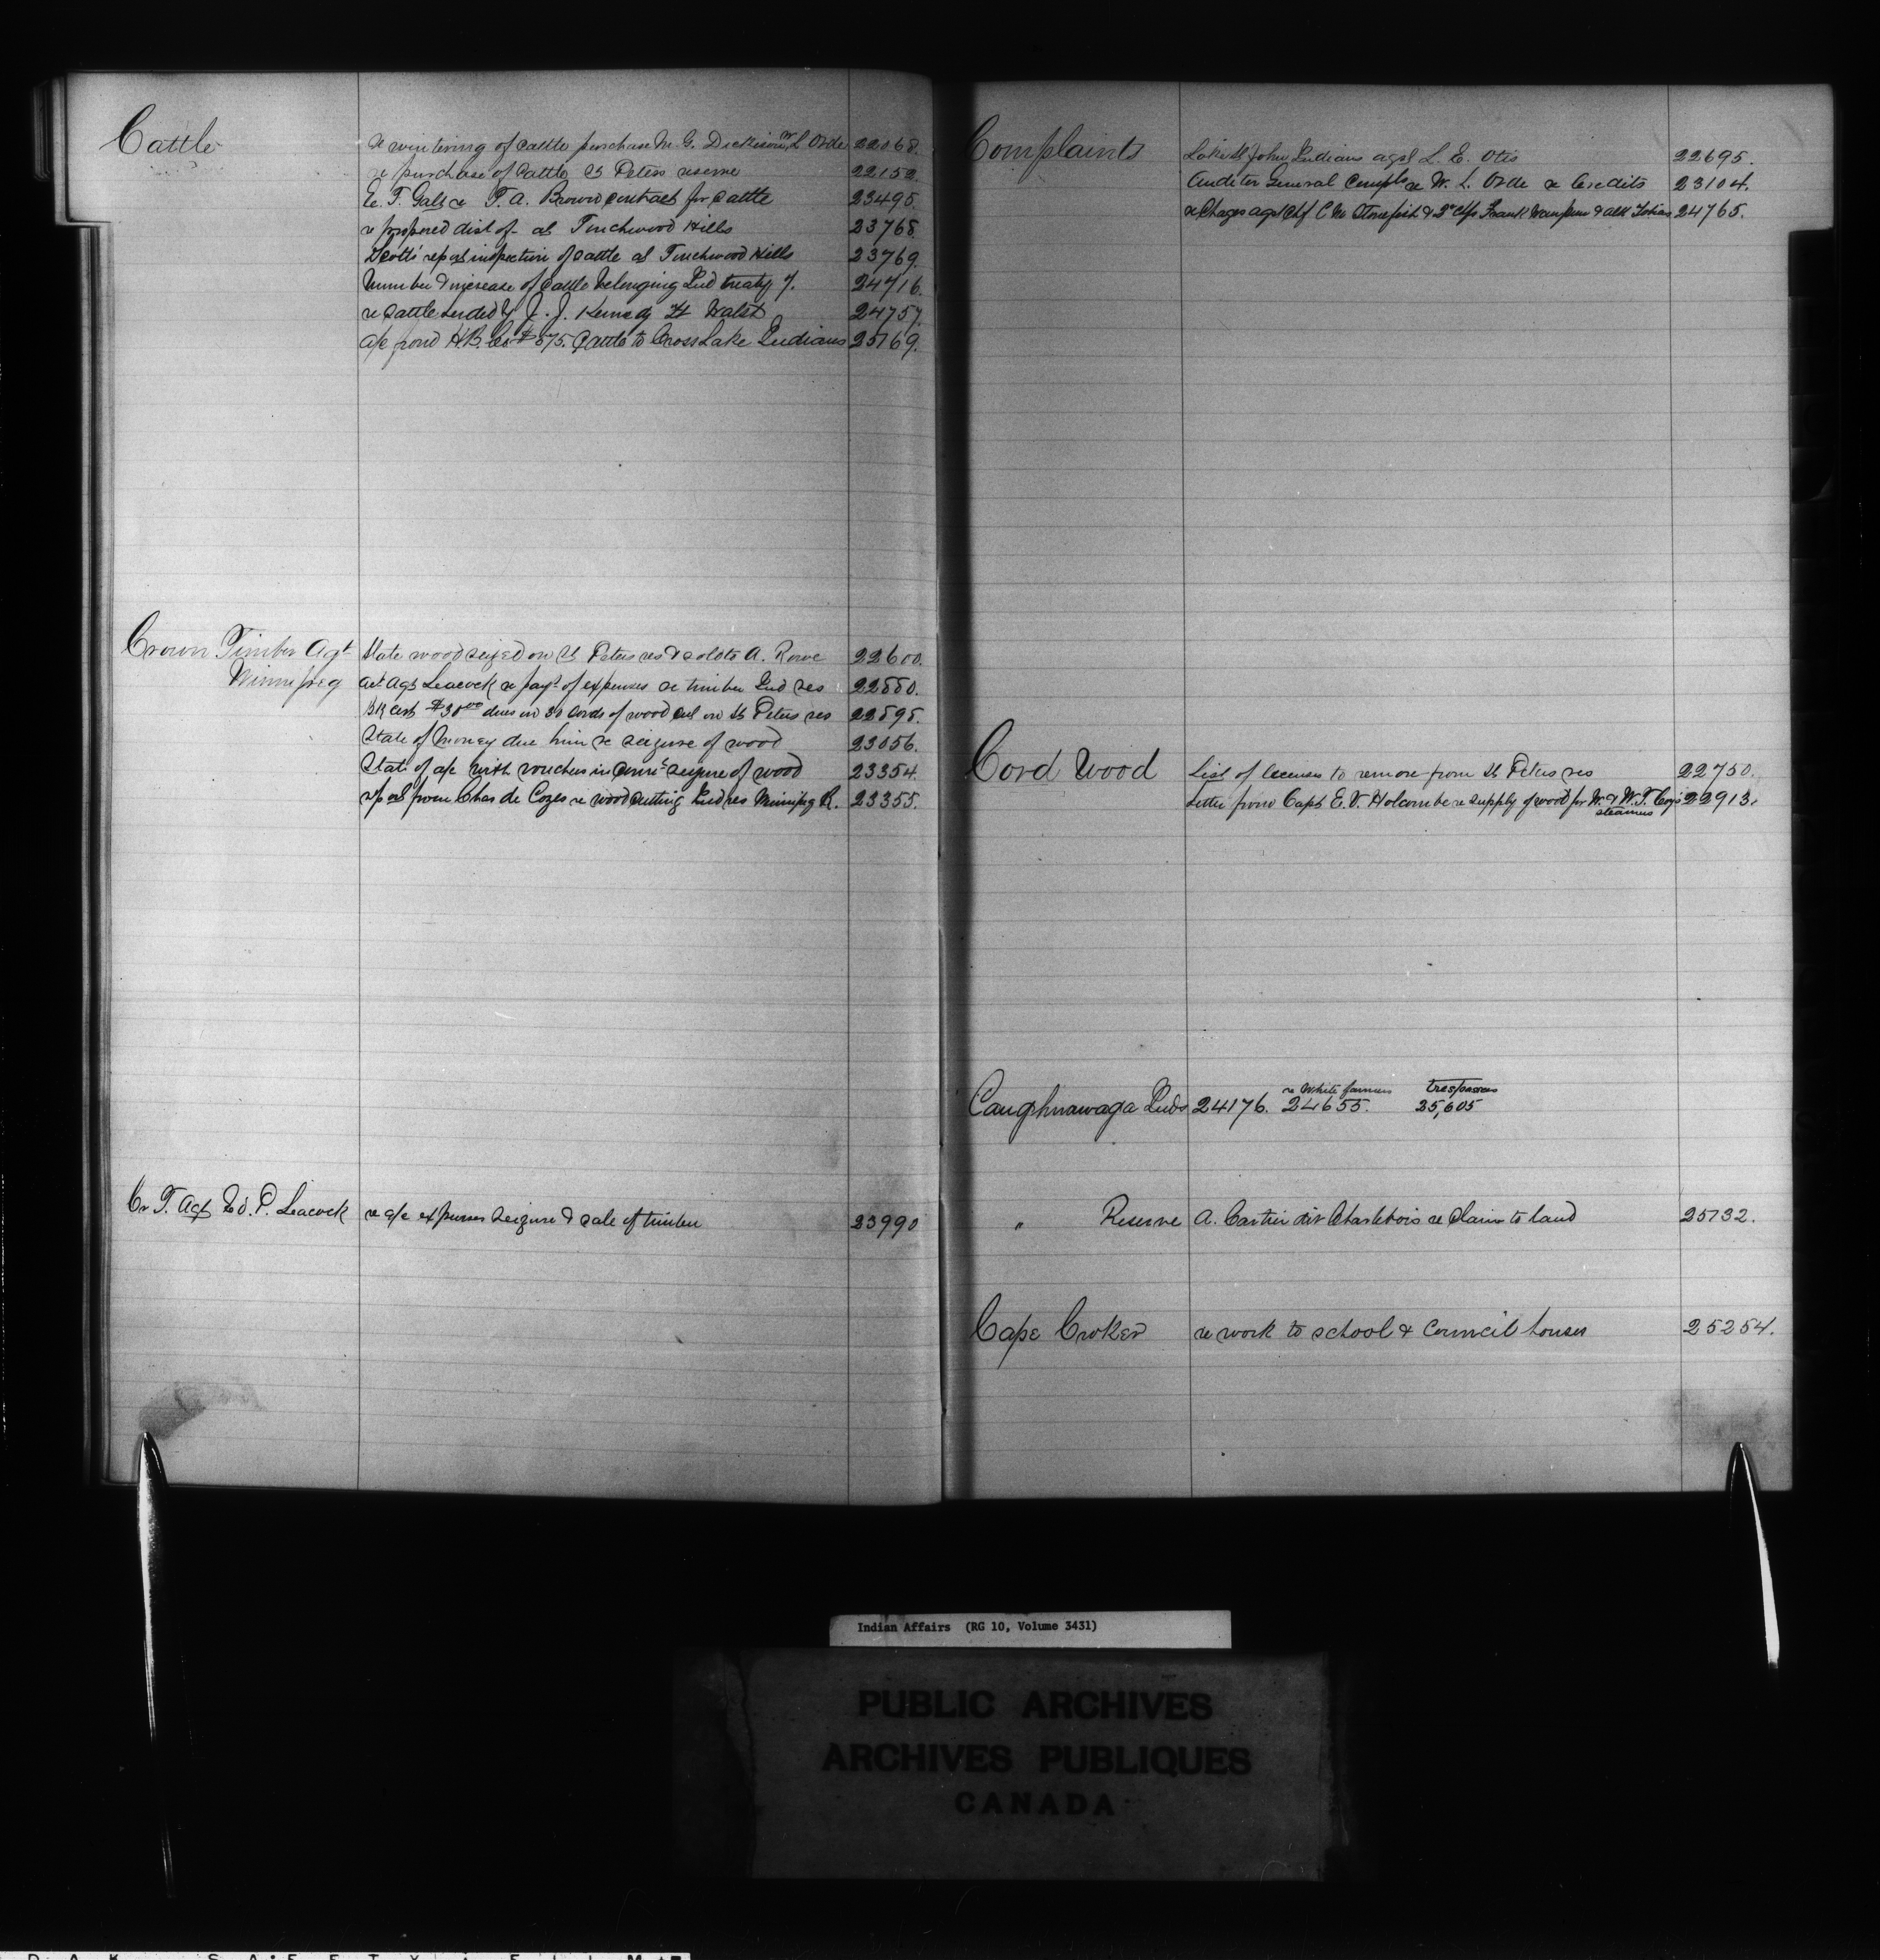 Cattle
re wintering of cattle purchase M. G. Dickieson, W. L. Orde 22068.
re purchase of cattle St Peters reserve 22152.
E. F. Gale re F. A. Brown contract for cattle 23495.
re proposed dist of at Touchwood Hills 23768.
Scott's report inspection of cattle at Touchwood Hills 23769.
Number & increase of cattle belonging Ind treaty 7. 24716.
re cattle herded by J. J. Kennedy Ft Walsh 24757.
a/c from H.B. Co $875. Cattle to Cross Lake Indians 25169.
Crown Timber Agt
Winnipeg
State wood seized on St Peters res & sold to A. Rowe 22600.
act Agt Leacock re payt of expenses re timber Ind res 22880.
Bk cert $30.00 dues on 30 cords of wood cut on St Peters res 22895.
State of money due him re seizure of wood 23056.
State of a/c with vouchers in connt seizure of wood 23354.
report from Chas de Cazes re wood cutting Ind res Winnipeg R. 23355.
Cr T. Agt Ed. P. Leacock re a/c expenses seizure & sale of timber 23990
Complaints
Lake St John Indians agst L. E. Otis 22695.
Auditor General Compls re W. L. Orde re Credits 23104.
re Chages agst Chf C. M. Stonefish & 2nd Chfs Frank Wampum & Tobias 24765.
Cord Wood
List of licenses to remove from St Peters res 22750.
Letter from Capt E. V. Holcombe re supply of wood for W. & W. T. Coy's 22913.
steamers
re White farmers trespassers
Caughnawaga Inds 24176. 24655. 25,605
" Reserve A. Cartier dit Charlebois re Claim to land 25732.
Cape Croker re work to school & Council houses 25254.
Indian Affairs (RG 10, Volume 3431)
PUBLIC ARCHIVES
ARCHIVES PUBLIQUES
CANADA